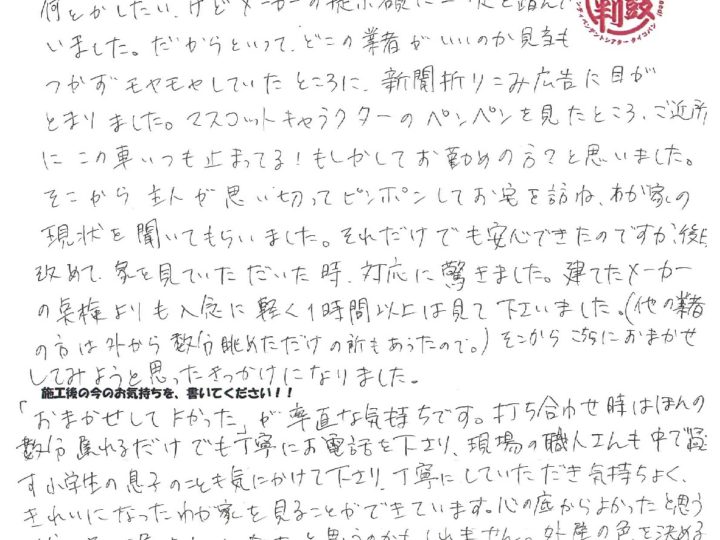 何とかしたい、けどメーカーの提示額に
いました。だからといって、どこの業者がいいのか見当も
つかずモヤモヤしていたところに、新聞折りこみ広告に目が
とまりました。マスコットキャラクターのペンペンを見たところ、ご近所
にこの車いつも止まってる!もしかしてお勤めの方?と思いました。
そこから主人が思い切ってピンポンしてお宅を訪ね、わが家の
現状を聞いてもらいました。それだけでも安心できたのですが、後日
改めて、家を見ていただいた時、対応に驚きました。建てたメーカー
の点検よりも入念に軽く1時間以上は見て下さいました。(他の業者
の方は外から数分眺めただけの所もあったので。)そこからこちらにおまかせ
してみようと思ったきっかけになりました。
施工後の今のお気持ちを、書いてください!!
「おまかせしてよかった」が率直な気持ちです。打ち合わせ時はほんの
数分遅れるだけでも丁寧にお電話を下さり、現場の職人さんも中で過ご
す小学生の息子のことも気にかけて下さり、丁寧にしていただき気持ちよく、
きれいになったわが家を見ることができています。心の底からよかったと思う
外壁の色を決める